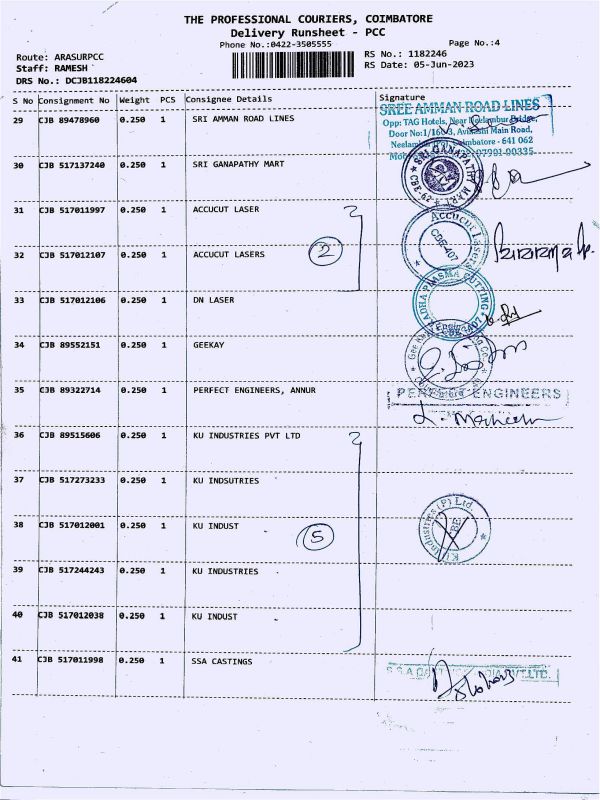 THE PROFESSIONAL COURIERS, COIMBATORE
Delivery Runsheet - PCC
Phone No.:0422-3505555
Page No.:4
Route: ARASURPCC
RS No.: 1182246
Staff: RAMESH
RS Date: 05-Jun-2023
DRS No.: DCJB118224604
S No Consignment No Weight PCS Consignee Details Signature
29 CJB 89478960 0.250 1 SRI AMMAN ROAD LINES
SREE AMMAN ROAD LINES
Opp: TAG Hotels, Near Neelambur Bridge,
Door No:1/160/3, Avinashi Main Road,
Coimbatore - 641 062
30 CJB 517137240 0.250 1 SRI GANAPATHY MART
SRI GANAPATHY MART
CBE-62
31 CJB 517011997 0.250 1 ACCUCUT LASER
Accucut Lasers
CBE-407
32 CJB 517012107 0.250 1 ACCUCUT LASERS
2
33 CJB 517012106 0.250 1 DN LASER
RADHA PLASMA CUTTING
34 CJB 89552151 0.250 1 GEEKAY
35 CJB 89322714 0.250 1 PERFECT ENGINEERS, ANNUR
PERFECT ENGINEERS
36 CJB 89515606 0.250 1 KU INDUSTRIES PVT LTD
37 CJB 517273233 0.250 1 KU INDSUTRIES
38 CJB 517012001 0.250 1 KU INDUST
5
KU Industries (P) Ltd.
CBE
39 CJB 517244243 0.250 1 KU INDUSTRIES
40 CJB 517012038 0.250 1 KU INDUST
41 CJB 517011998 0.250 1 SSA CASTINGS